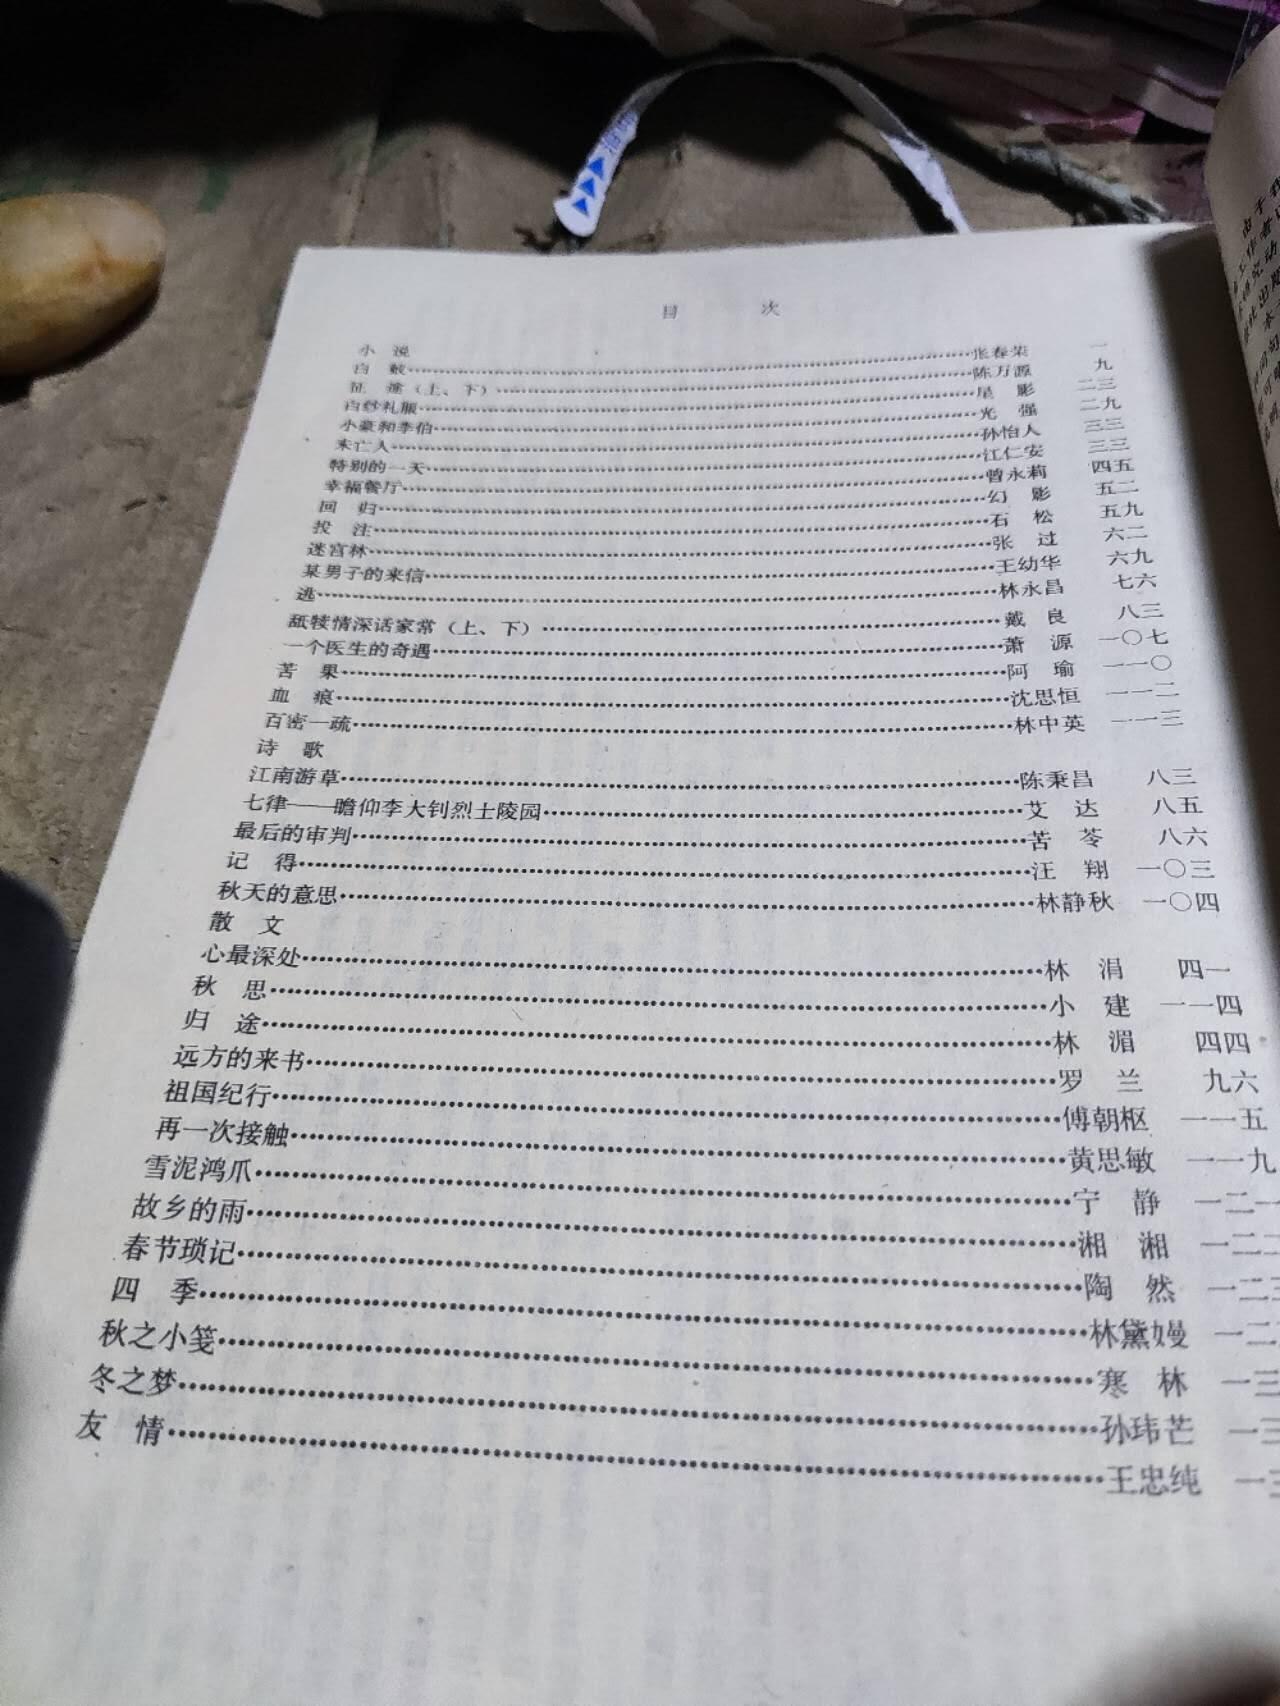 目 次
小 说
白 鲛 张春荣 一
征 途（上、下） 陈万源 九
白纱礼服 星 影 二三
小豪和李伯 光 强 二九
未亡人 孙怡人 三三
特别的一天 江仁安 三三
幸福餐厅 曾永莉 四五
回 归 幻 影 五二
投 注 石 松 五九
迷宫林 张 过 六二
某男子的来信 王幼华 六九
逃 林永昌 七六
舐犊情深话家常（上、下） 戴 良 八三
一个医生的奇遇 萧 源 一〇七
苦 果 阿 瑜 一一〇
血 痕 沈思恒 一一二
百密一疏 林中英 一一三
诗 歌
江南游草 陈秉昌 八三
七律——瞻仰李大钊烈士陵园 艾 达 八五
最后的审判 苦 苓 八六
记 得 汪 翔 一〇三
秋天的意思 林静秋 一〇四
散 文
心最深处 林 涓 四一
秋 思 小 建 一一四
归 途 林 湄 四四
远方的来书 罗 兰 九六
祖国纪行 傅朝枢 一一五
再一次接触 黄思敏 一一九
雪泥鸿爪 宁 静 一二
故乡的雨 湘 湘 一二
春节琐记 陶 然 一二
四 季 林黛嫚 一二
秋之小笺 寒 林 一三
冬之梦 孙玮芒 一三
友 情 王忠纯 一三